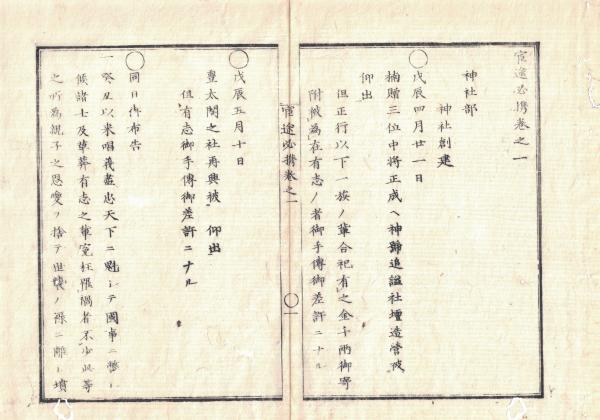 官途必携巻之一
神社部
神社創建
○戊辰四月廿一日
楠贈三位中将正成ヘ神号追謚社壇造営被
仰出
但正行以下一族ノ輩合祀有之金千両御寄
附被為在有志ノ者御手傳御差許ニナル
官途必携巻之一
○一
○戊辰五月十日
豊太閤之社再興被 仰出
但有志御手傳御差許ニナル
○同日御布告
一癸丑以来唱義盡忠天下ニ魁シテ國事ニ斃レ
候諸士及草莽有志之輩冤枉罹禍者不少此等
之所為親子之恩愛ヲ捨テ世襲ノ祿ニ離レ墳